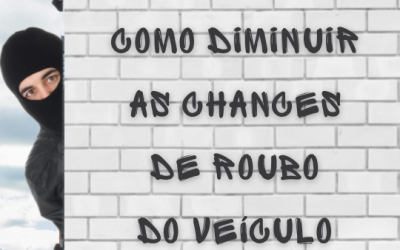 COMO DIMINUIR
AS CHANCES
DE ROUBO
DO VEÍCULO